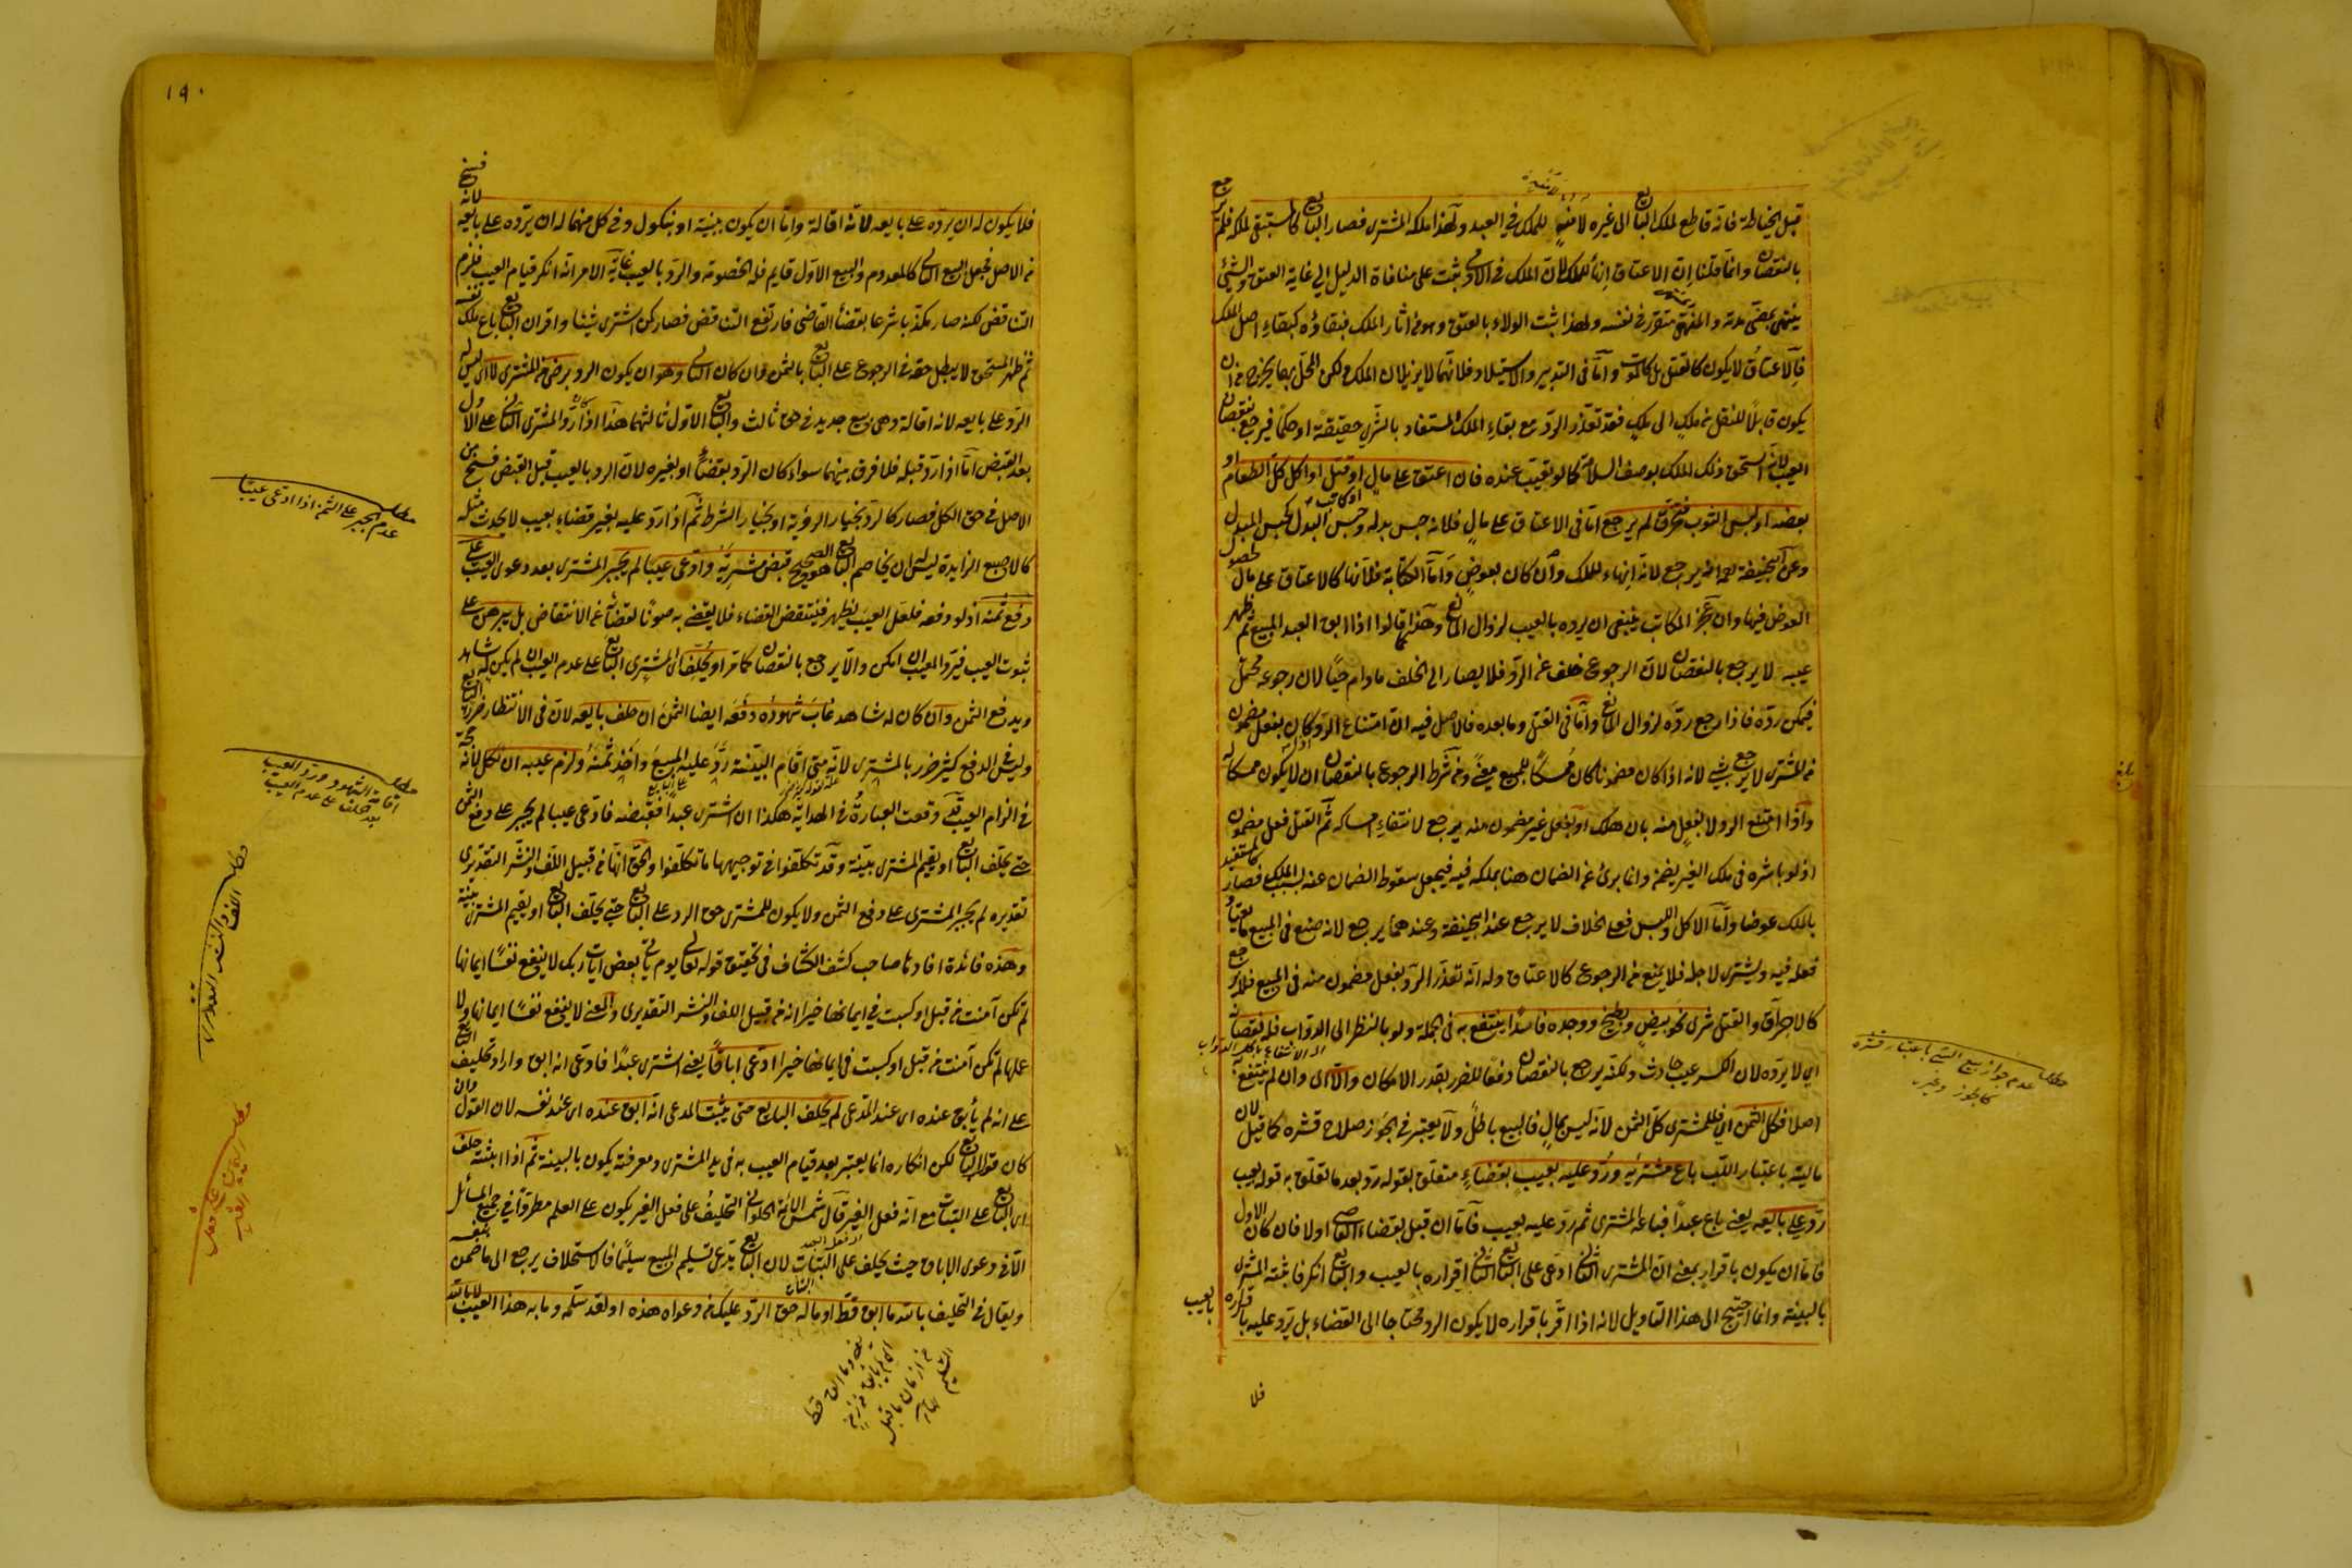 قبل الخياطة فانه قاطع لملك البايع الى غيره لا منه للملك في العبد ولهذا ملكه المشتري فصار البايع كالمستبقي ملكه فلم يرجع
بالنقصان وانما قلنا ان الاعتاق انهاء للملك لان الملك في الادمي ثبت على منافاة الدليل الى غاية العتق والشيء
ينتهي بمضي مدته والمنتهي متقرر في نفسه ولهذا ثبت الولاء بالعتق وهو من اثار الملك فبقاؤه كبقاء اصل الملك
فالاعتاق لا يكون كالقتل بل كالموت واما في التدبير والاستيلاد فلانهما لا يزيلان الملك ولكن المحل بهما يخرج من ان
يكون قابلا للنقل من ملك الى ملك فقد تعذر الرد مع بقاء الملك المستفاد بالشرى حقيقة او حكما فيرجع بنقصان
العيب لانه استحق ذلك الملك بوصف السلامة كما لو تعيب عنده فان اعتق على مال او قتل او اكل كل الطعام او
بعضه او لبس الثوب فتخرق لم يرجع اما في الاعتاق على مال فلانه حبس بدله وحبس البدل كحبس المبدل
وعن ابي حنيفة انه يرجع لانه انهاء للملك وان كان بعوض واما الكتابة فلانها كالاعتاق على مال لحصول
العوض فيها وان عجز المكاتب ينبغي ان يرده بالعيب لزوال المانع وهكذا قالوا اذا ابق العبد المبيع ثم ظهر
عيبه لا يرجع بالنقصان لان الرجوع خلف عن الرد فلا يصار الى الخلف ما دام حيا لان رجوعه محتمل
فيمكن رده فاذا رجع رده لزوال المانع واما في القتل وما بعده فالاصل فيه ان امتناع الرد كان بفعل مضمون
من المشتري لا يرجع بشيء لانه اذا كان مضمونا كان ممسكا للمبيع معنى ومن شرط الرجوع بالنقصان ان لا يكون ممسكا له
واذا امتنع الرد لا بفعل منه بان هلك او بفعل غير مضمون منه يرجع لانتفاء امساكه ثم القتل فعل مضمون
اذ لو باشره في ملك الغير يضمن وانما برئ عن الضمان هنا بملكه فيه فيجعل سقوط الضمان عنه بسبب الملك فصار كالمستفيد
بالملك عوضا واما الاكل واللبس فعلى الخلاف لا يرجع عند ابي حنيفة وعندهما يرجع لانه صنع في المبيع ما يعتاد
فعله فيه ويشترى لاجله فلا يمنع من الرجوع كالاعتاق وله انه تعذر الرد بفعل مضمون منه في المبيع فلا يرجع
كالاحراق والقتل شرى نحو بيض وبطيخ ووجده فاسدا ينتفع به في الجملة ولو بالنظر الى الدواب فله نقصانه
اي لا يرده لان الكسر عيب حادث ولكنه يرجع بالنقصان دفعا للضرر بقدر الامكان والا اي وان لم ينتفع به
اصلا فكل الثمن اي فللمشتري كل الثمن لانه ليس بمال فالبيع باطل ولا يعتبر في الجوز صلاح قشره كما قيل لان
ماليته باعتبار اللب باع مشتريه ورد عليه بعيب بقضاء متعلق بقوله رد بعد ما تعلق به قوله بعيب
رد على بايعه يعني باع عبدا فباعه المشتري ثم رد عليه بعيب فاما ان قبل بقضاء القاضي او لا فان كان الاول
فاما ان يكون باقرار بمعنى ان المشتري الثاني ادعى على البايع الثاني اقراره بالعيب والبايع انكر فاثبته المشتري
بالبينة وانما احتيج الى هذا التاويل لانه اذا اقر باقراره لا يكون الرد محتاجا الى القضاء بل يرد عليه باقراره بالعيب
فلا
عدم جواز بيع الشيء باعتبار قشره
كالجوز وغيره
١٩٠
فلا يكون له ان يرده على بايعه لانه اقالة واما ان يكون ببينة او بنكول وفي كل منهما له ان يرده على بايعه لانه فسخ
من الاصل فجعل البيع الثاني كالمعدوم والبيع الاول قايم فله الخصومة والرد بالعيب غاية الامر انه انكر قيام العيب فلزم
التناقض لكنه صار مكذبا شرعا بقضاء القاضي فارتفع التناقض فصار كمن اشترى شيئا واقر ان البايع باع ملك نفسه
ثم ظهر المستحق لا يبطل حقه في الرجوع على البايع بالثمن وان كان الثاني وهو ان يكون الرد برضى من المشتري لا اي ليس له
الرد على بايعه لانه اقالة وهي بيع جديد في حق ثالث والبايع الاول ثالثهما هذا اذا رد المشتري الثاني على الاول
بعد القبض اما اذا رد قبله فلا فرق بينهما سواء كان الرد بقضاء او بغيره لان الرد بالعيب قبل القبض فسخ من
الاصل في حق الكل فصار كالرد بخيار الرؤية او بخيار الشرط ثم اذا رد عليه بغير قضاء بعيب لا يحدث مثله
كالاصبع الزايدة ليس له ان يخاصم البايع هو الصحيح قبض مشتريه وادعى عيبا لم يجبر المشتري بعد دعوى العيب على
دفع ثمنه اذ لو دفعه فلعل العيب يظهر فينتقض القضاء فلا يقضي به صونا لقضائه عن الانتقاض بل يبرهن على
ثبوت العيب فيرد المعيب ان امكن والا يرجع بالنقصان كما مر او يحلف اي المشتري البايع على عدم العيب ان لم يكن له شاهد
ويدفع الثمن وان كان له شاهد غاب شهوده دفعه ايضا الثمن ان حلف بايعه لان في الانتظار ضرر البايع
وليس في الدفع كثير ضرر بالمشتري لانه متى اقام البينة رد عليه المبيع واخذ ثمنه ولزم عيبه ان نكل لانه حجة
في الزام العيب وقعت العبارة في الهداية هكذا ان اشترى عبدا فقبضه فادعى عيبا لم يجبر على دفع الثمن
حتى يحلف البايع او يقيم المشتري بينة وقد تكلفوا في توجيهها ما تكلفوا والحق انها من قبيل اللف والنشر التقديري
تقديره لم يجبر المشتري على دفع الثمن ولا يكون للمشتري حق الرد على البايع حتى يحلف البايع او يقيم المشتري بينة
وهذه فائدة افادها صاحب كشف الكشاف في تحقيق قوله تعالى يوم ياتي بعض ايات ربك لا ينفع نفسا ايمانها
لم تكن امنت من قبل او كسبت في ايمانها خيرا انه من قبيل اللف والنشر التقديري والمعنى لا ينفع نفسا ايمانها ولا
عملها لم تكن آمنت من قبل او كسبت في ايمانها خيرا ادعى اباقا يعني اشترى عبدا فادعى انه ابق واراد تحليف البايع
على انه لم يأبق عنده اي عند المدعي لم يحلف البايع حتى يثبت المدعي انه ابق عنده اي عند نفسه لان القول وان
كان قول البايع لكن انكاره انما يعتبر بعد قيام العيب به في يد المشتري ومعرفته يكون بالبينة ثم اذا اثبته حلف
اي البايع على البتات مع انه فعل الغير قال شمس الائمة الحلواني التحليف على فعل الغير يكون على العلم مطردا في جميع المسائل
الا في دعوى الاباق حيث يحلف على البتات لان البايع يدعي تسليم المبيع سليما فالاستحلاف يرجع الى ما ضمن بنفسه
ويقال في التحليف بالله ما ابق قط او ما له حق الرد عليك من دعواه هذه او لقد سلمه وما به هذا العيب لا بالله
عدم الجبر على الثمن اذا ادعى عيبا
اقامة الشهود ورد العيب
بعد حلف على عدم العيب
اللف والنشر التقديري